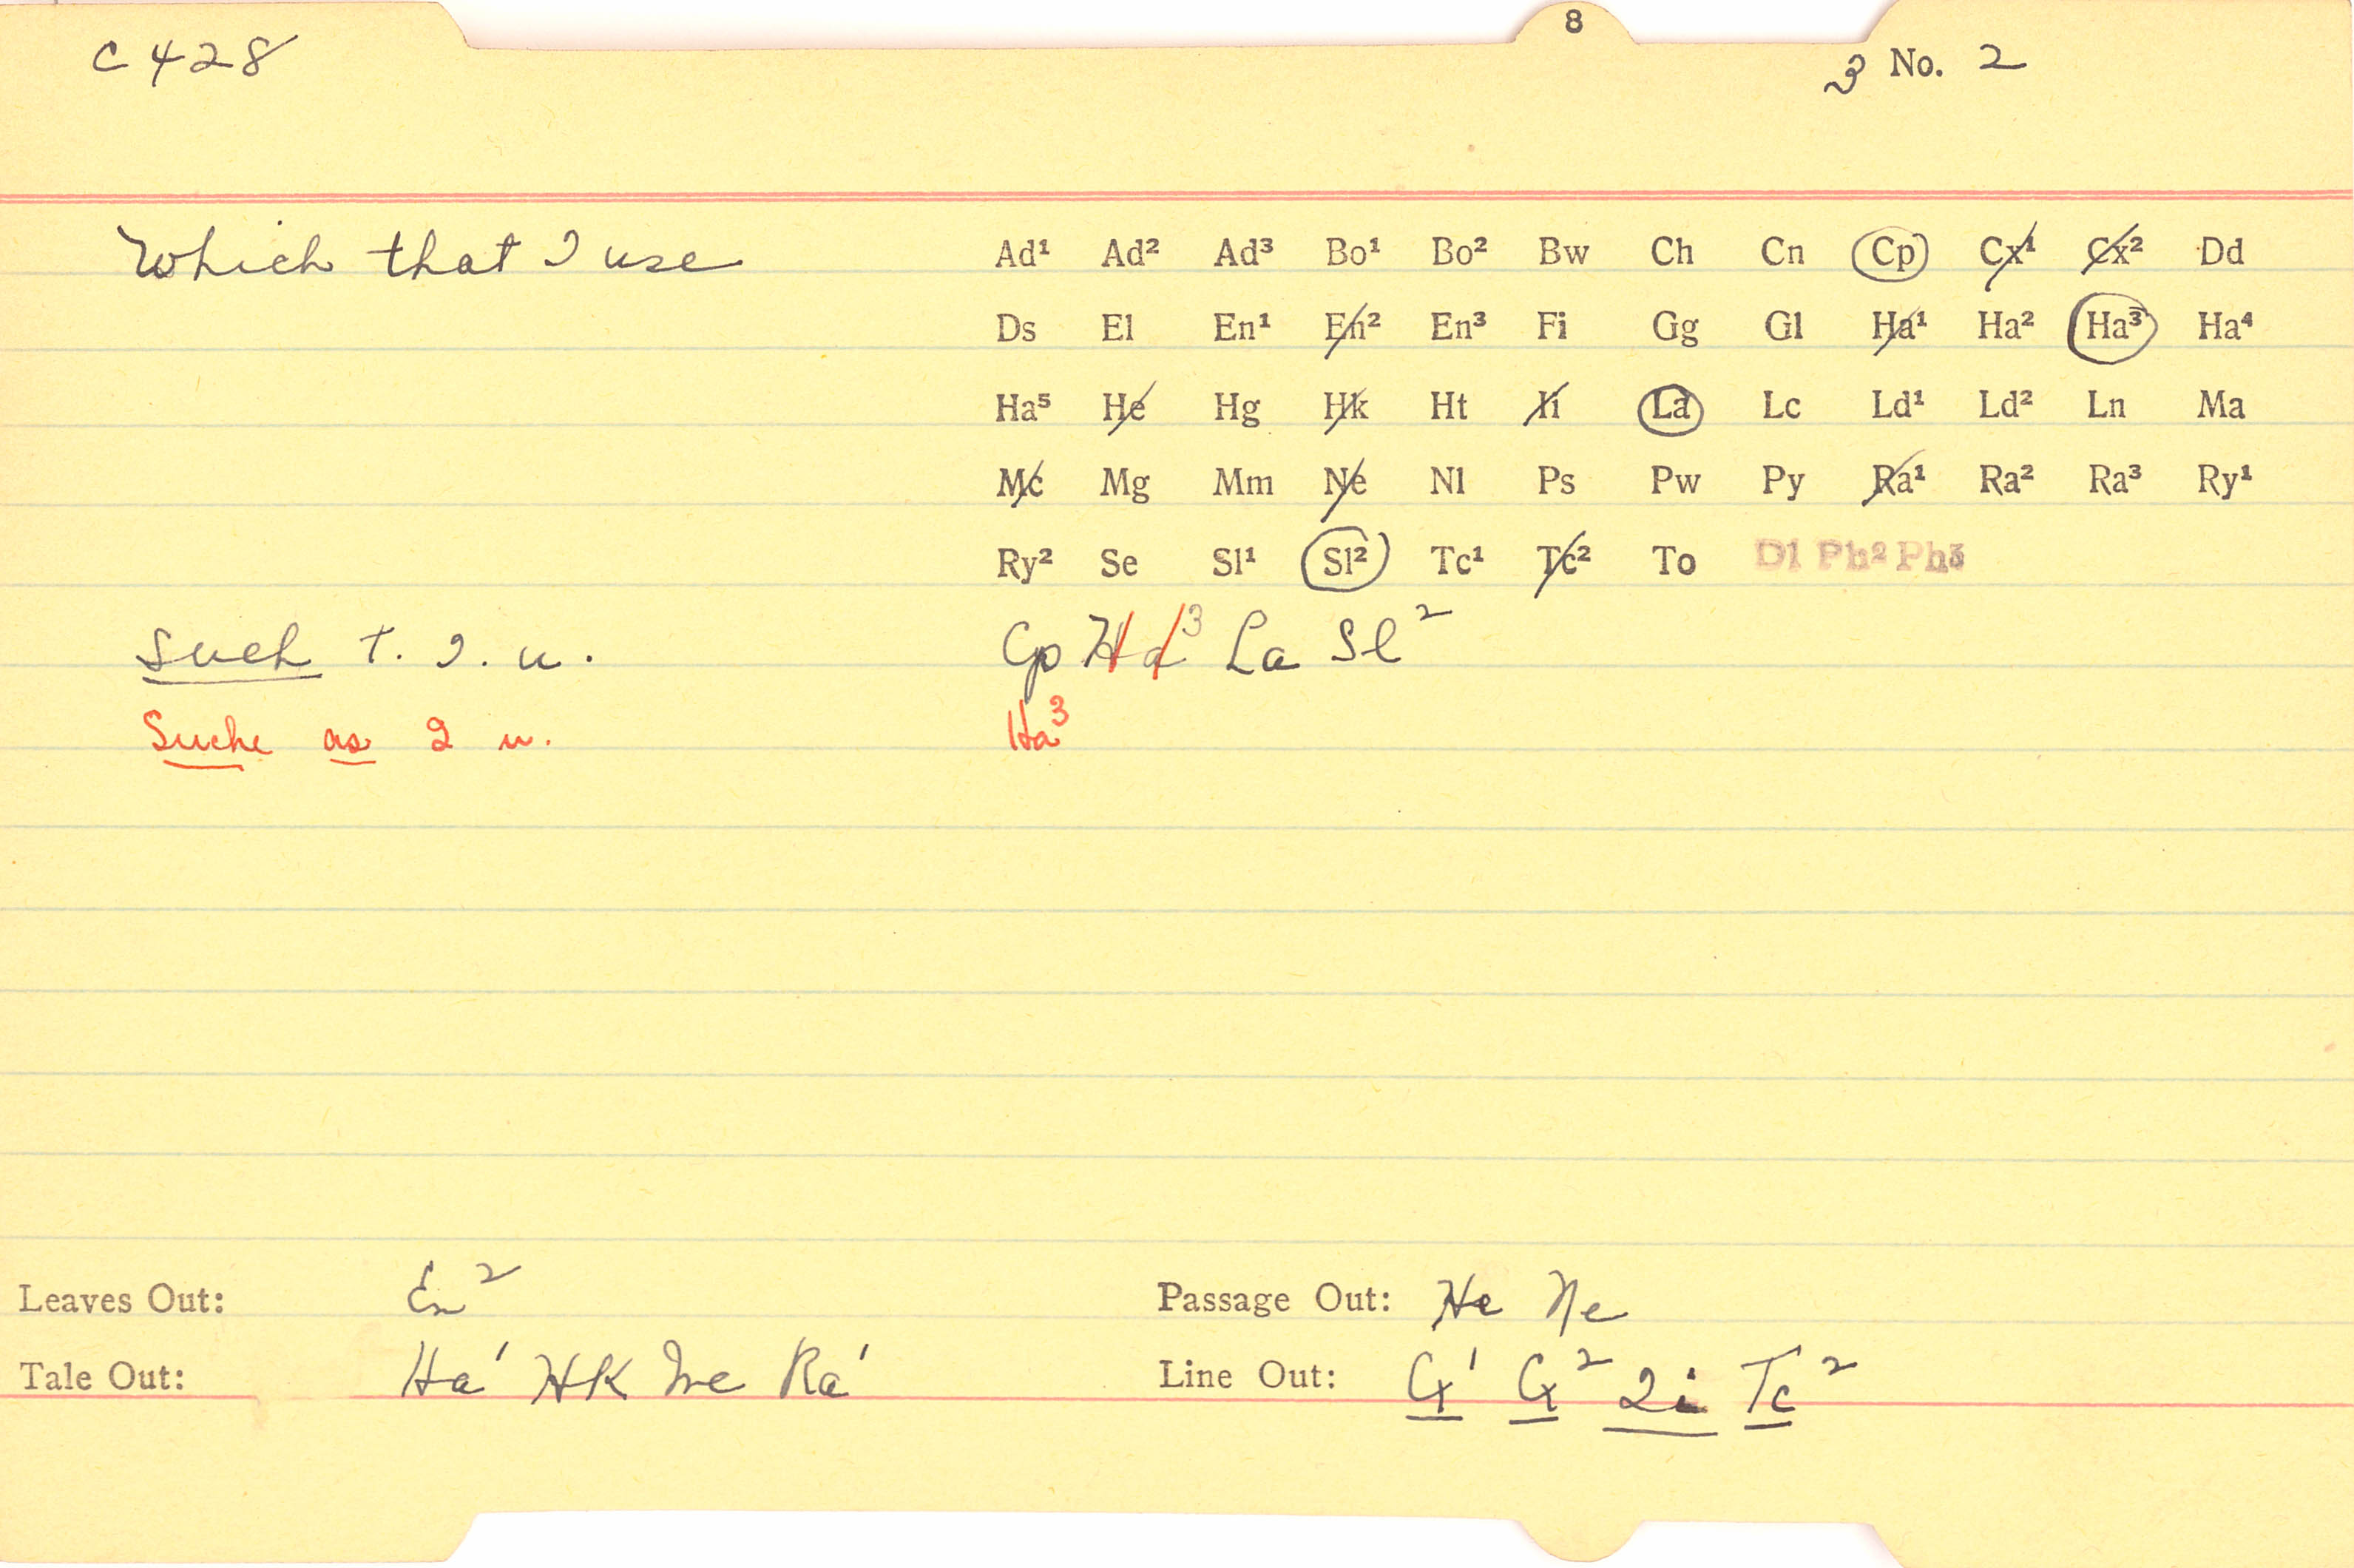 8
C 428
3 No. 2
Which that I use
Ad¹ Ad² Ad³ Bo¹ Bo² Bw Ch Cn Cp Cx¹ Cx² Dd
Ds El En¹ En² En³ Fi Gg Gl Ha¹ Ha² Ha³ Ha⁴
Ha⁵ He Hg Hk Ht Ii La Lc Ld¹ Ld² Ln Ma
Mc Mg Mm Ne Nl Ps Pw Py Ra¹ Ra² Ra³ Ry¹
Ry² Se Sl¹ Sl² Tc¹ Tc² To Dl Ph² Ph³
Such t. I. u. Cp Ha³ La Sl²
Suche as I u. Ha³
Leaves Out: En² Passage Out: He Ne
Tale Out: Ha¹ Hk Mc Ra¹ Line Out: Cx¹ Cx² Ii Tc²